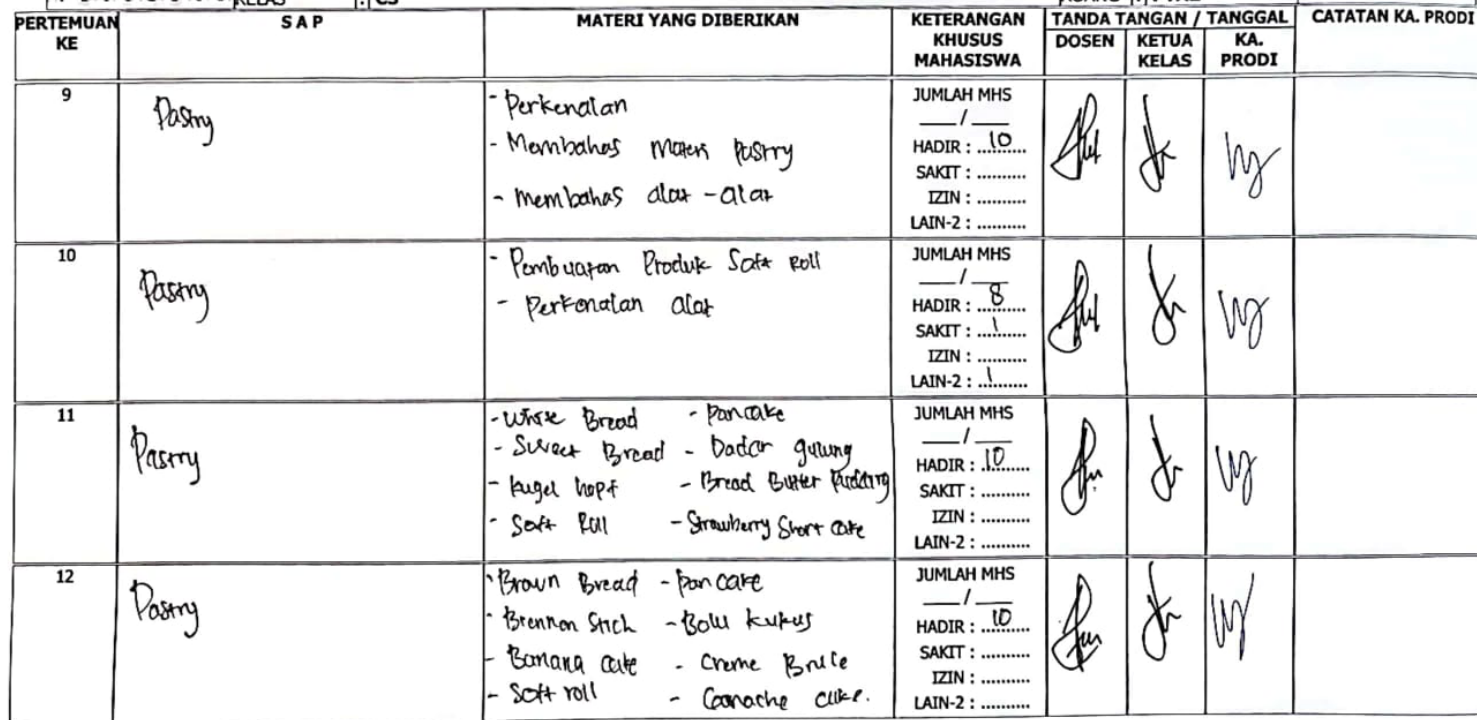 KELAS : C3
PERTEMUAN KE
S A P
MATERI YANG DIBERIKAN
KETERANGAN KHUSUS MAHASISWA
TANDA TANGAN / TANGGAL
DOSEN
KETUA KELAS
KA. PRODI
CATATAN KA. PRODI
9
Pastry
- Perkenalan
- Membahas Materi Pastry
- Membahas alat - alat
JUMLAH MHS
___/___
HADIR : 10
SAKIT : ..........
IZIN : ..........
LAIN-2 : ..........
10
Pastry
- Pembuatan Produk Soft Roll
- Perkenalan alat
JUMLAH MHS
___/___
HADIR : 8
SAKIT : 1
IZIN : ..........
LAIN-2 : 1
11
Pastry
- White Bread - Pancake
- Sweet Bread - Dadar gulung
- Kugel hopf - Bread Butter Pudding
- Soft Roll - Strawberry Short Cake
JUMLAH MHS
___/___
HADIR : 10
SAKIT : ..........
IZIN : ..........
LAIN-2 : ..........
12
Pastry
- Brown Bread - Pancake
- - Bolu kukus
- Banana Cake - Creme Brule
- Soft roll - Ganache cake.
JUMLAH MHS
___/___
HADIR : 10
SAKIT : ..........
IZIN : ..........
LAIN-2 : ..........